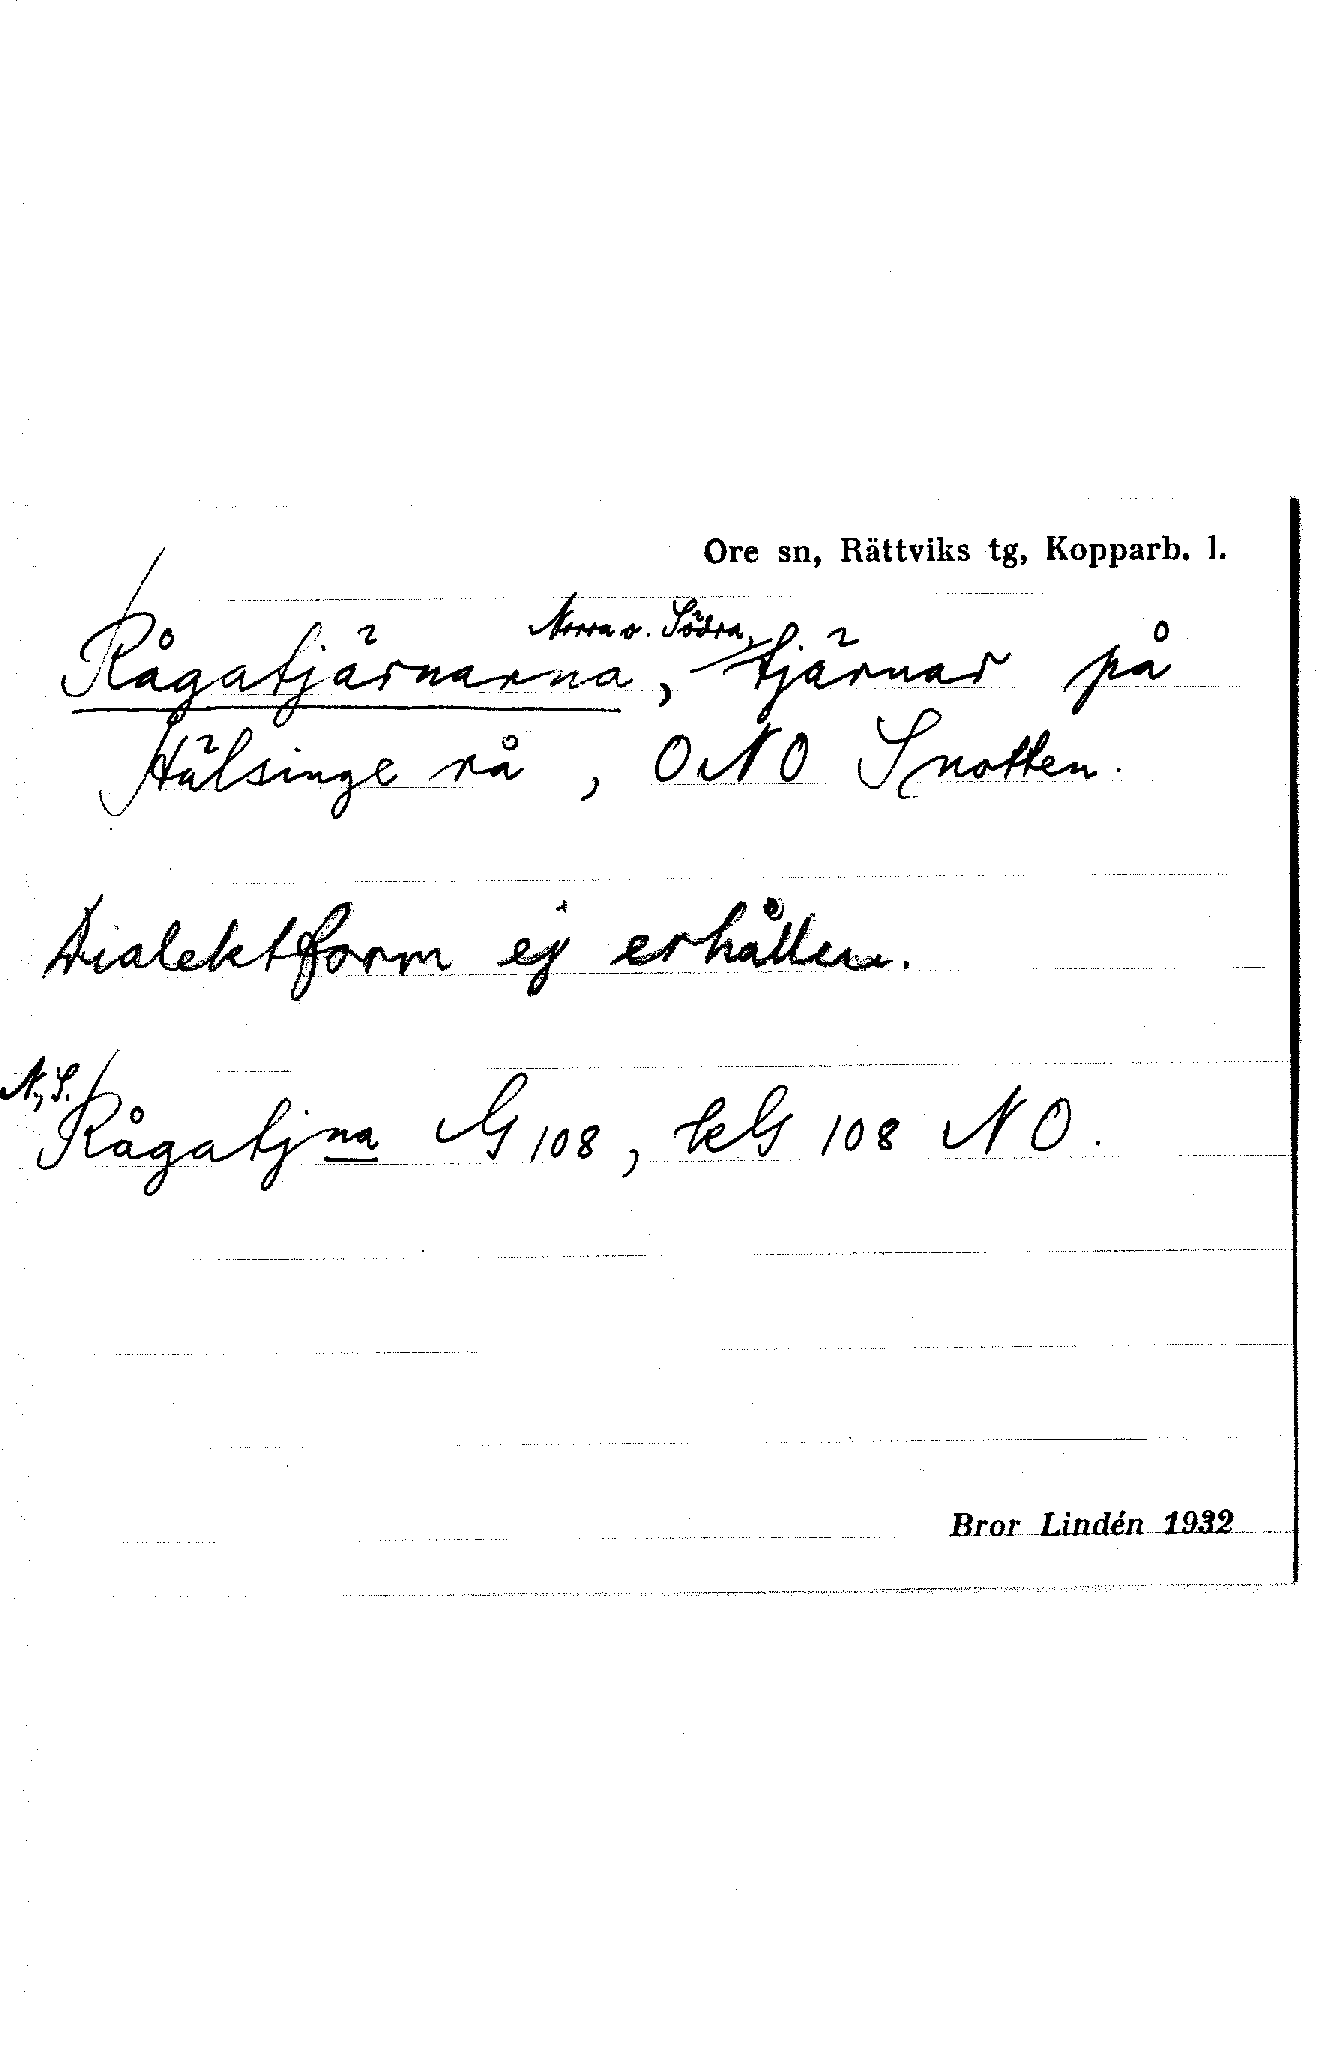 Ore sn, Rättviks tg, Kopparb. l.
Rågatjärnarna, Norra o. Södra, tjärnar på
Hälsinge rå, ONO Snotten.
Dialektform ej erhållen.
N., S.
Rågatjna G 108, kG 108 NO.
Bror Lindén 1932